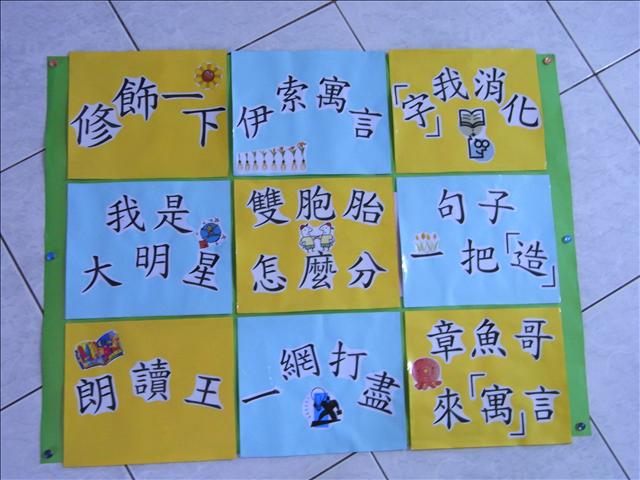 修飾一下
伊索寓言
「字」我消化
我是
大明星
雙胞胎
怎麼分
句子
一把「造」
朗讀王
一網打盡
章魚哥
來「寓」言